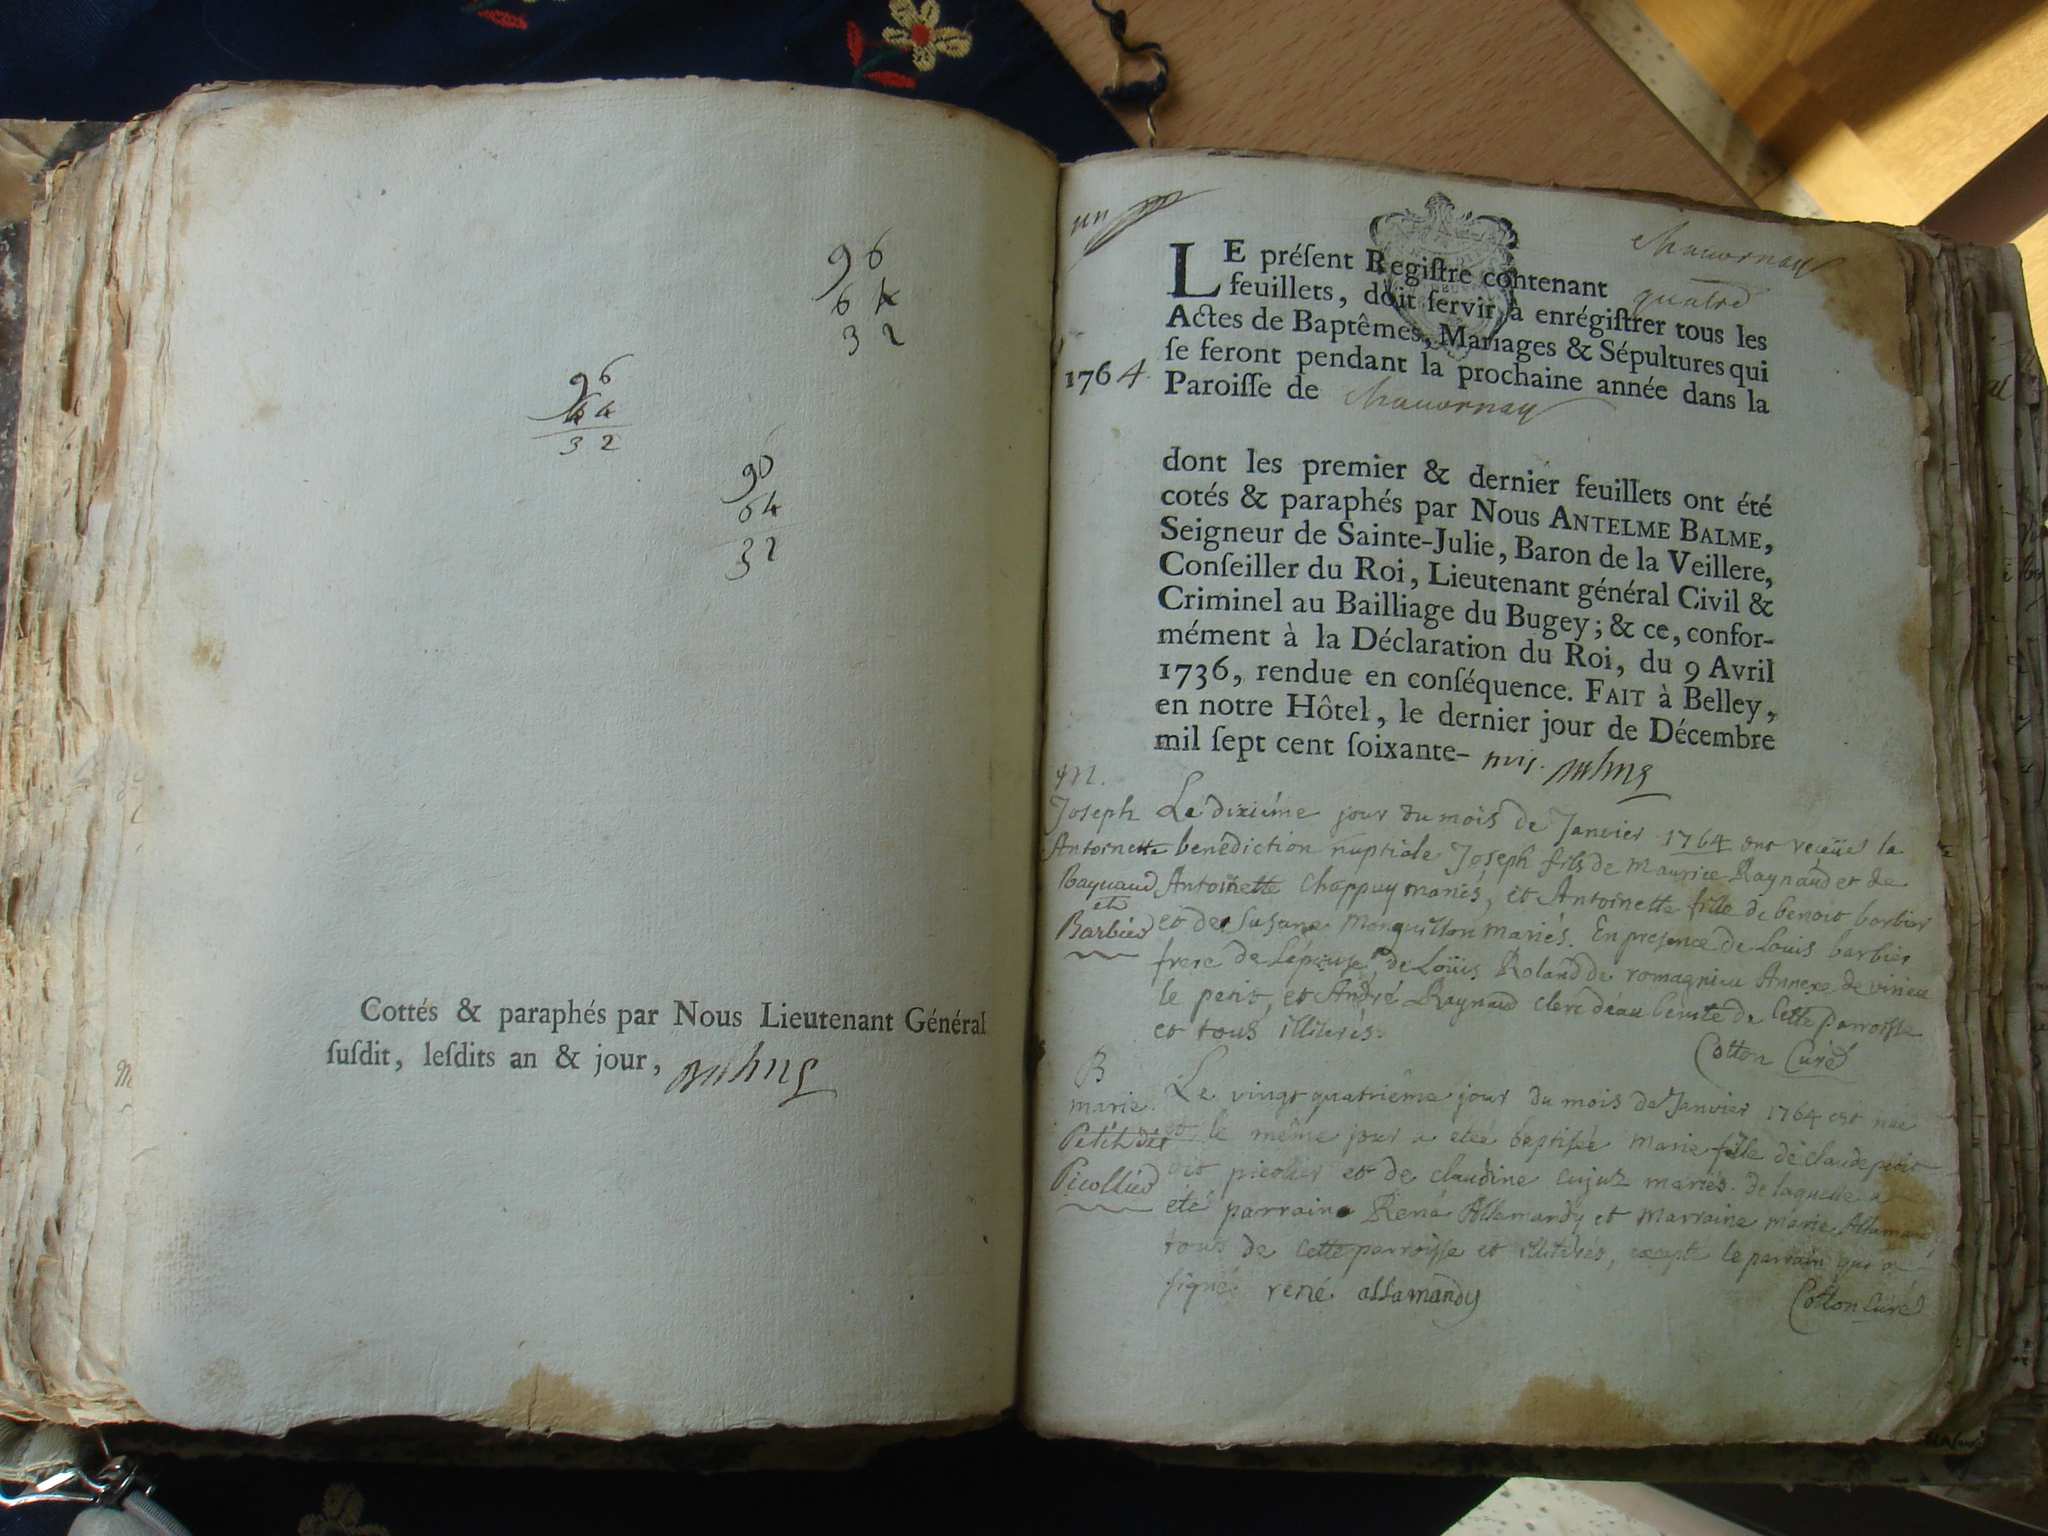 96
64
32
96
64
32
96
64
32
Cottés & paraphés par Nous Lieutenant Général
ſuſdit, leſdits an & jour,
un
Chavornay
LE préſent Regiſtre contenant quatre
feuillets, doit ſervir à enrégiſtrer tous les
Actes de Baptêmes, Mariages & Sépultures qui
ſe feront pendant la prochaine année dans la
1764. Paroiſſe de Chavornay
dont les premier & dernier feuillets ont été
cotés & paraphés par Nous ANTELME BALME,
Seigneur de Sainte-Julie, Baron de la Veillere,
Conſeiller du Roi, Lieutenant général Civil &
Criminel au Bailliage du Bugey; & ce, confor-
mément à la Déclaration du Roi, du 9 Avril
1736, rendue en conſéquence. FAIT à Belley,
en notre Hôtel, le dernier jour de Décembre
mil ſept cent ſoixante-
M.
Joseph
Antoinette
Raynaud
et
Barbier
Le dixiéme jour du mois de Janvier 1764 ont receüe la
benediction nuptiale Joseph fils de Maurice Raynaud et de
Antoinette Chappuy mariés, et Antoinette fille de benoit barbier
et de Susane Monguillon mariés. En presence de Louis barbier
frere de Lépouse, de Loüis Roland de romagnieu Annexe de virieu
le petit, et André Raynaud clerc deau benite de Cette parroisse
et tous illiterés.
Cotton Curé
B
marie
Petit dit
Picollier
Le vingt quatriéme jour du mois de Janvier 1764 est née
et le même jour a eteé baptisée Marie fille de claude petit
dit picolier et de claudine Cujuz mariés. de laquelle a
été parrain René Allamandy et Marraine marie Allamand
tous de Cette parroisse et illiterés, excepté le parrain qui a
signé. rené allamandy
Cotton Curé